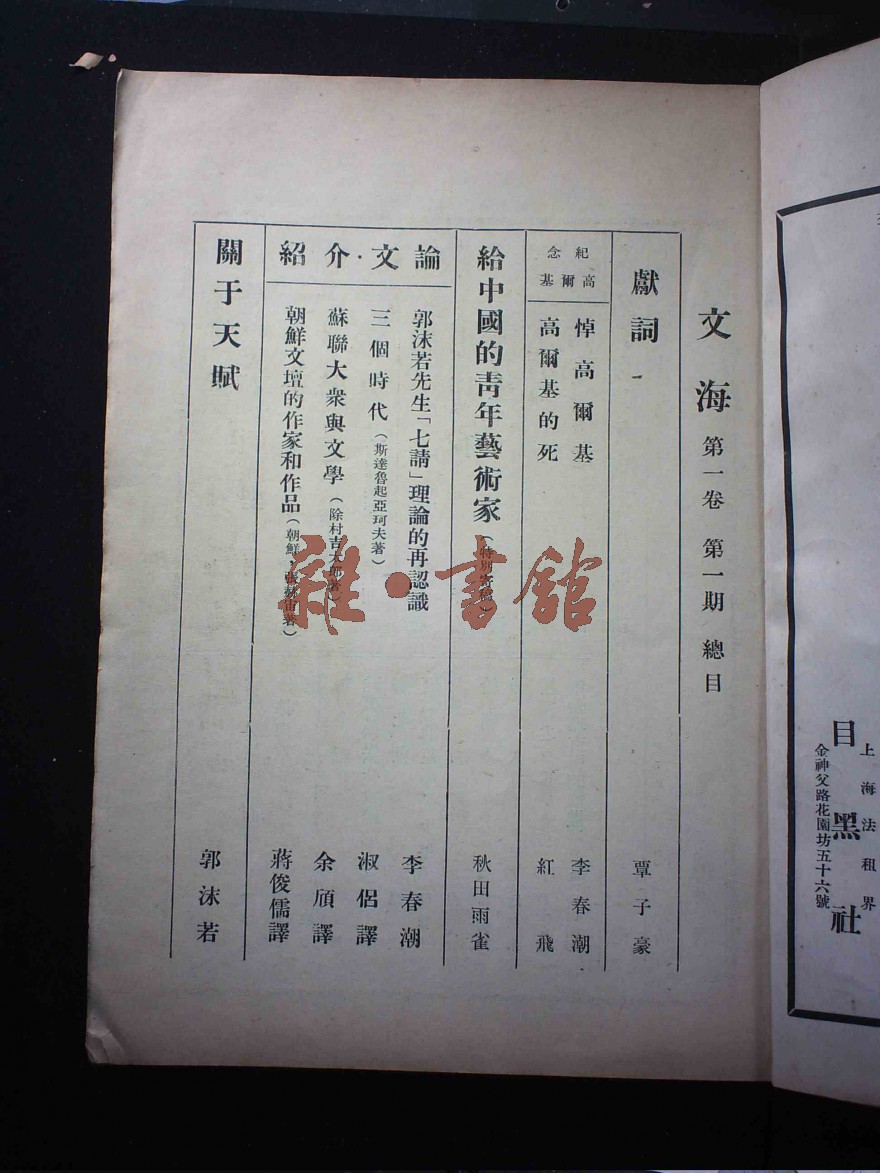 上海法租界
目黑社
金神父路花園坊五十六號
文海 第一卷 第一期 總目
獻詞 覃子豪
紀念高爾基
悼高爾基 李春潮
高爾基的死 紅飛
給中國的靑年藝術家(特別寄稿) 秋田雨雀
論文・介紹
郭沫若先生「七請」理論的再認識 李春潮
三個時代(斯達魯起亞珂夫著) 淑侶譯
蘇聯大衆與文學(除村吉太郎著) 余頎譯
朝鮮文壇的作家和作品(朝鮮,張赫宙著) 蔣俊儒譯
關于天賦 郭沫若
雜・書館